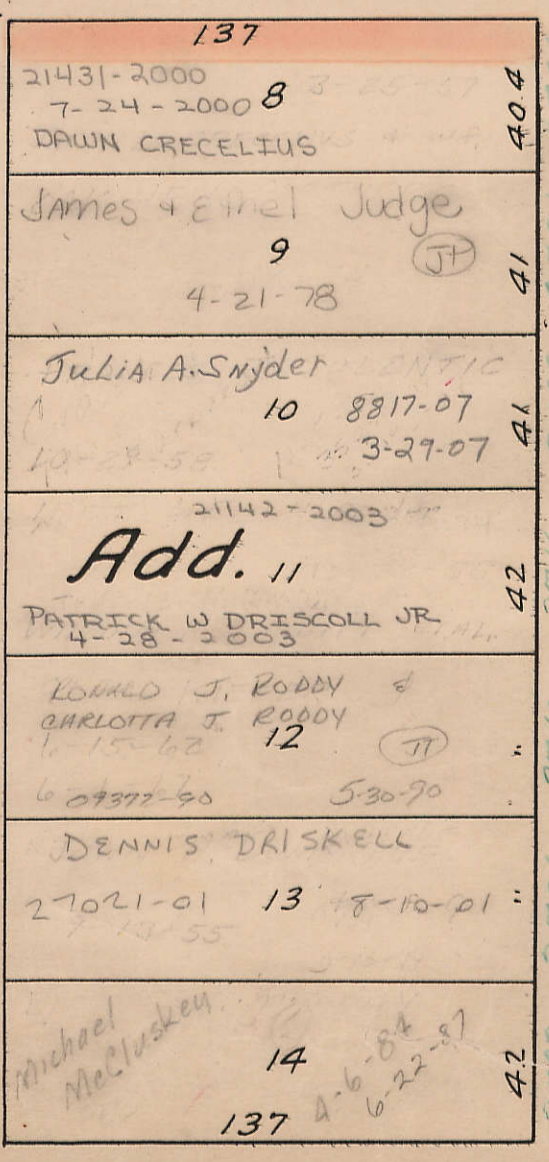 137
21431-2000
7-24-2000 8
40.4
DAWN CRECELIUS
James & Ethel Judge
9 JT
41
4-21-78
Julia A. Snyder
10 8817-07
41
3-29-07
21142-2003
Add. 11
42
PATRICK W DRISCOLL JR
4-28-2003
RONALD J. RODDY &
CARLOTTA J. RODDY
6-15-62 12 JT "
09377-90 5-30-90
DENNIS DRISKELL
27021-01 13 8-10-01 "
Michael
McCluskey
14 4-6-84
6-22-87
42
137